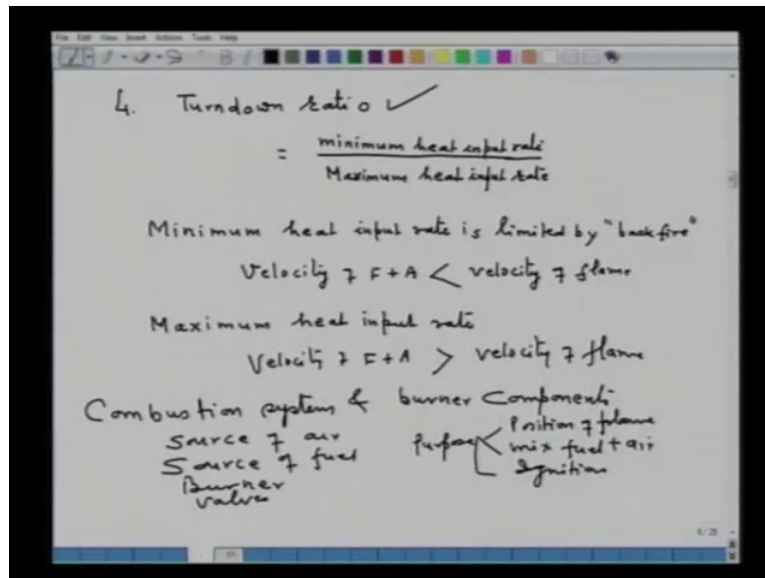 File Edit View Insert Actions Tools Help
4. Turndown ratio ✓
= minimum heat input rate
Maximum heat input rate
Minimum heat input rate is limited by "backfire"
Velocity of F + A < velocity of flame
Maximum heat input rate
Velocity of F + A > velocity of flame
Combustion system & burner Components
Source of air
Source of fuel
Burner
valves
Purpose
Position of flame
mix fuel + air
Ignition